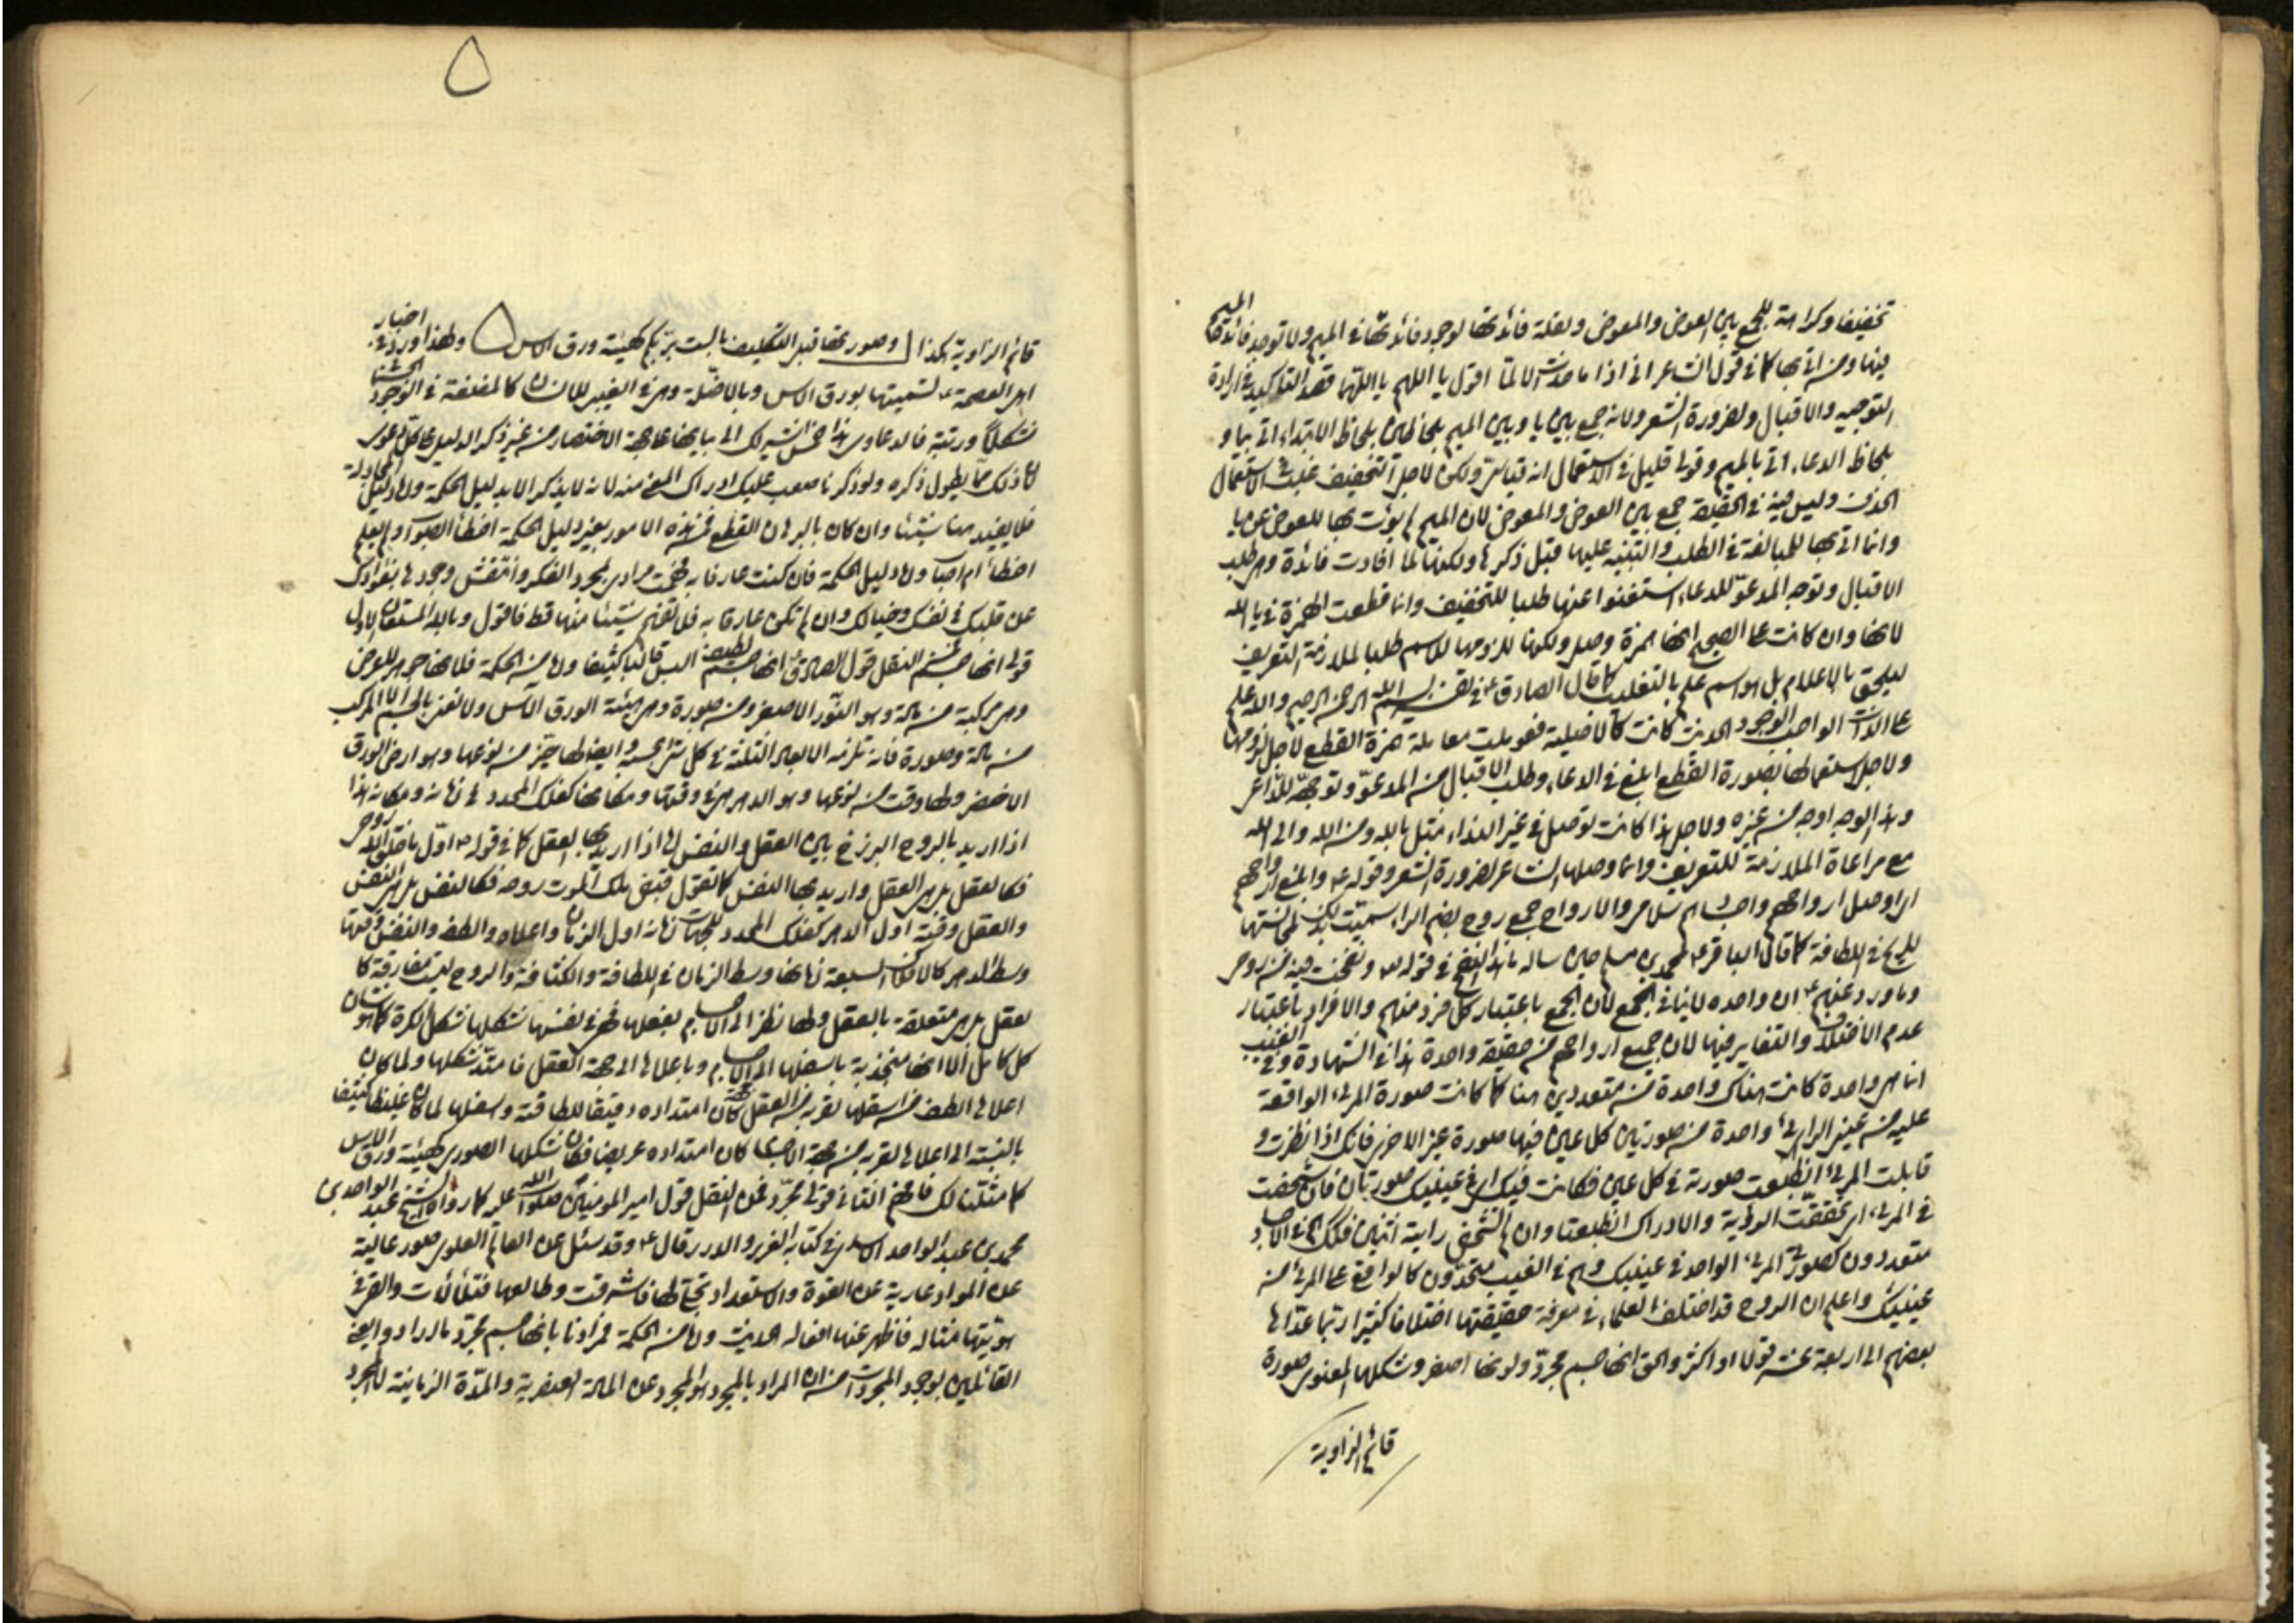 تخفيفا وكراهة للجمع بين العوض والمعوض ولقلة فائدتها لوجود فائدتها في الميم ولا توجد فائدة الميم
فيها ومن اتى بها كما في قول الشاعر اني اذا ما حدث الما اقول يا اللهم يا اللهما قصد التوكيد في ارادة
التوجيه والاقبال ولضرورة الشعر ولانه جمع بين يا وبين الميم بلحاظين بلحاظ الابتداء اتى بيا و
بلحاظ الدعاء اتى بالميم وقولي قليل في الاستعمال انه قياس ولكن لاجل التخفيف غلب في الاستعمال
الحذف وليس فيه في الحقيقة جمع بين العوض والمعوض لان الميم لم يؤت بها للعوض عن يا
وانما اتى بها للمبالغة في الطلب والتنبيه عليها قبل ذكرها ولكنها لما افادت فائدة وهي طلب
الاقبال وتوجه المدعو للدعاء استغنوا عنها طلبا للتخفيف وانما قطعت الهمزة في يا الله
لانها وان كانت على الصحيح انها همزة وصل ولكونها للزومها للاسم طلبا لملازمة التعريف
ليلحق بالاعلام بل هو اسم علم بالتغليب كما قال الصادق ع في تفسير بسم الله الرحمن الرحيم والله علم
على الذات الواجب الوجود الحديث كانت كالاصلية فعوملت معاملة همزة القطع لاجل لزومها
ولاجل استعمالها بصورة القطع ابلغ في الدعاء وطلب الاقبال من المدعو وتوجهه للداعي
وهذا الوجه اوجه من غيره ولاجل هذا كانت توصل في غير النداء مثل بالله ومن الله والى الله
مع مراعاة الملازمة للتعريف وانما وصلها الشاعر لضرورة الشعر وقوله ع وابلغ ارواحهم
اي اوصل ارواحهم واجسادهم سلامي والارواح جمع روح بضم الراء سميت بذلك لمجانستها
للريح في اللطافة كما قال الباقر ع لمحمد بن مسلم حين سأله ما هذا النفخ في قوله تع ونفخت فيه من روحي
وما ورد عنهم ع ان واحده لا ينافي الجمع لان الجمع باعتبار كل فرد منهم والافراد باعتبار
عدم الاختلاف والتغاير فيها لان جميع ارواحهم من حقيقة واحدة هذا في الشهادة وفي الغيب
انما هي واحدة كانت هناك واحدة من متعددين هنا كما كانت صورة المرئي الواقعة
عليه من عيني الرائي واحدة من صورتين كل عين فيها صورة غير الاخرى فانك اذا نظرت و
قابلت المرئي انطبعت صورته في كل عين فكانت فيك اي في عينيك صورتان فان شخصت
في المرئي اي تحققت الرؤية والادراك انطبعتا وان لم تشخص رايته اثنين فلذلك هم في الاجساد
متعددون كصورتي المرئي الواحد في عينيك وهم في الغيب متحدون كالواقع على المرئي من
عينيك واعلم ان الروح قد اختلف العلماء في معرفة حقيقتها اختلافا كثيرا ربما عدها
بعضهم الى اربعة عشر قولا او اكثر والحق انها جسم مجرد ولونها اصفر وشكلها المعنوي صورة
قائم الزاوية
۵
قائم الزاوية هكذا وصورتها قبل التكليف بالست بربكم كهيئة ورق الاس ولهذا ورد في اخبار
اهل العصمة ع تسميتها بورق الاس وبالاظلة وهي في الغيب للانسان كالمضغة في الوجود الحسي
شكلا ورتبة فالدعاوي هذا خمس نشير لك الى بيانها على جهة الاختصار من غير ذكر الدليل على كل دعوى
لان ذلك مما يطول ذكره ولو ذكرناه صعب عليك ادراك المعنى منه لانه لا يذكر الا بدليل الحكمة واما دليل المجادلة
فلا يفيد هنا شيئا وان كان بالبرهان القطعي فمن هذه الامور بغير دليل الحكمة اخطأ الصواب ولم يعلم
اخطأ ام اصاب واما دليل الحكمة فان كنت عارفا به فهمت مرادي بمجرد الفكر والتفتيش وجدها بفؤادك
عن قلبك في نفسك وخيالك وان لم تكن عارفا به فلن تفهم شيئا منها قط فاقول وبالله المستعان الاول
قولي انها جسم فمن النقل قول الصادق ع انها جسم لطيف البس قالبا كثيفا واما من الحكمة فلانها جوهر للعرض
وهي مركبة من مادة وهو النور الاصفر ومن صورة وهي هيئة الورق الاس ولا نعني بالجسم الا المركب
من مادة وصورة فانه تلزمه الابعاد الثلثة في كل شيء بحسبه وايضا لها حيز من نوعها وهو ارض الورق
الاخضر ولها وقت من نوعها وهو الدهر فهي في وقتها ومكانها كفلك المحدد في زمانه ومكانه هذا
اذا اريد بالروح البرزخ بين العقل والنفس اما اذا اريد بها العقل كما في قوله ص اول ما خلق الله روحي
فكالعقل بل هي العقل واريد بها النفس كما تقول قبض ملك الموت روحه فكالنفس بل هي النفس
والعقل وقته اول الدهر كفلك المحدد للجهات زمانه اول الزمان واعلاه والطفه والنفس وقتها
وسط الدهر كالافلاك السبعة زمانها وسط الزمان في اللطافة والكثافة والروح ليست مفارقة كا
لعقل بل هي متعلقة بالعقل ولها نظر الى الاجسام بفعلها فهي في نفسها شكلها شكل الكرة كما هو شان
كل كامل الا انها منجذبة باسفلها الى الاجسام وباعلاها الى جهة العقل فامتد شكلها ولما كان
اعلاها الطف من اسفلها لقربه من العقل كان امتداده دقيقا للطافته واسفلها لما كان غليظا كثيفا
بالنسبة الى اعلاها لقربه من جهة الاجسام كان امتداده عريضا فكان شكلها الصوري كهيئة ورق الاس
كما مثلنا لك فافهم الثاني قولي مجرد فمن النقل قول امير المومنين صلوات الله عليه كما رواه الشيخ عبد الواحد بن
محمد بن عبد الواحد الآمدي في كتابه الغرر والدرر قال ع وقد سئل عن العالم العلوي صور عالية
عن المواد عارية عن القوة والاستعداد تجلى لها فاشرقت وطالعها فتلألأت والقى في
هويتها مثاله فاظهر عنها افعاله الحديث واما من الحكمة فمرادنا بانها جسم مجرد ما اراد وا يعني
القائلين بوجود المجردات من ان المراد بالمجرد هو المجرد عن المادة العنصرية والمدة الزمانية لا المجرد